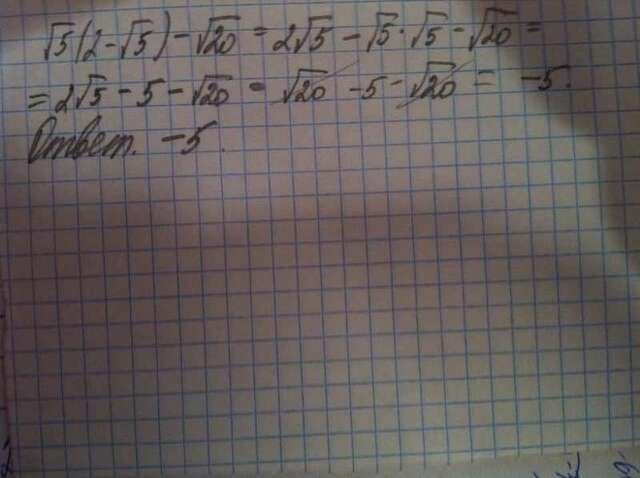 √5(2-√5)-√20 = 2√5 - √5·√5 - √20 =
= 2√5 - 5 - √20 = √20 - 5 - √20 = -5.
Ответ. -5.